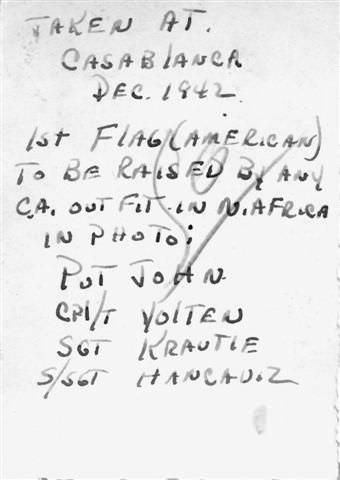 TAKEN AT.
CASABLANCA
DEC. 1942.
1st FLAG (AMERICAN)
TO BE RAISED BY ANY
C.A. OUTFIT IN N. AFRICA
IN PHOTO:
PVT JOHN
CPL/T VOLTEN
SGT KRAUTIE
S/SGT